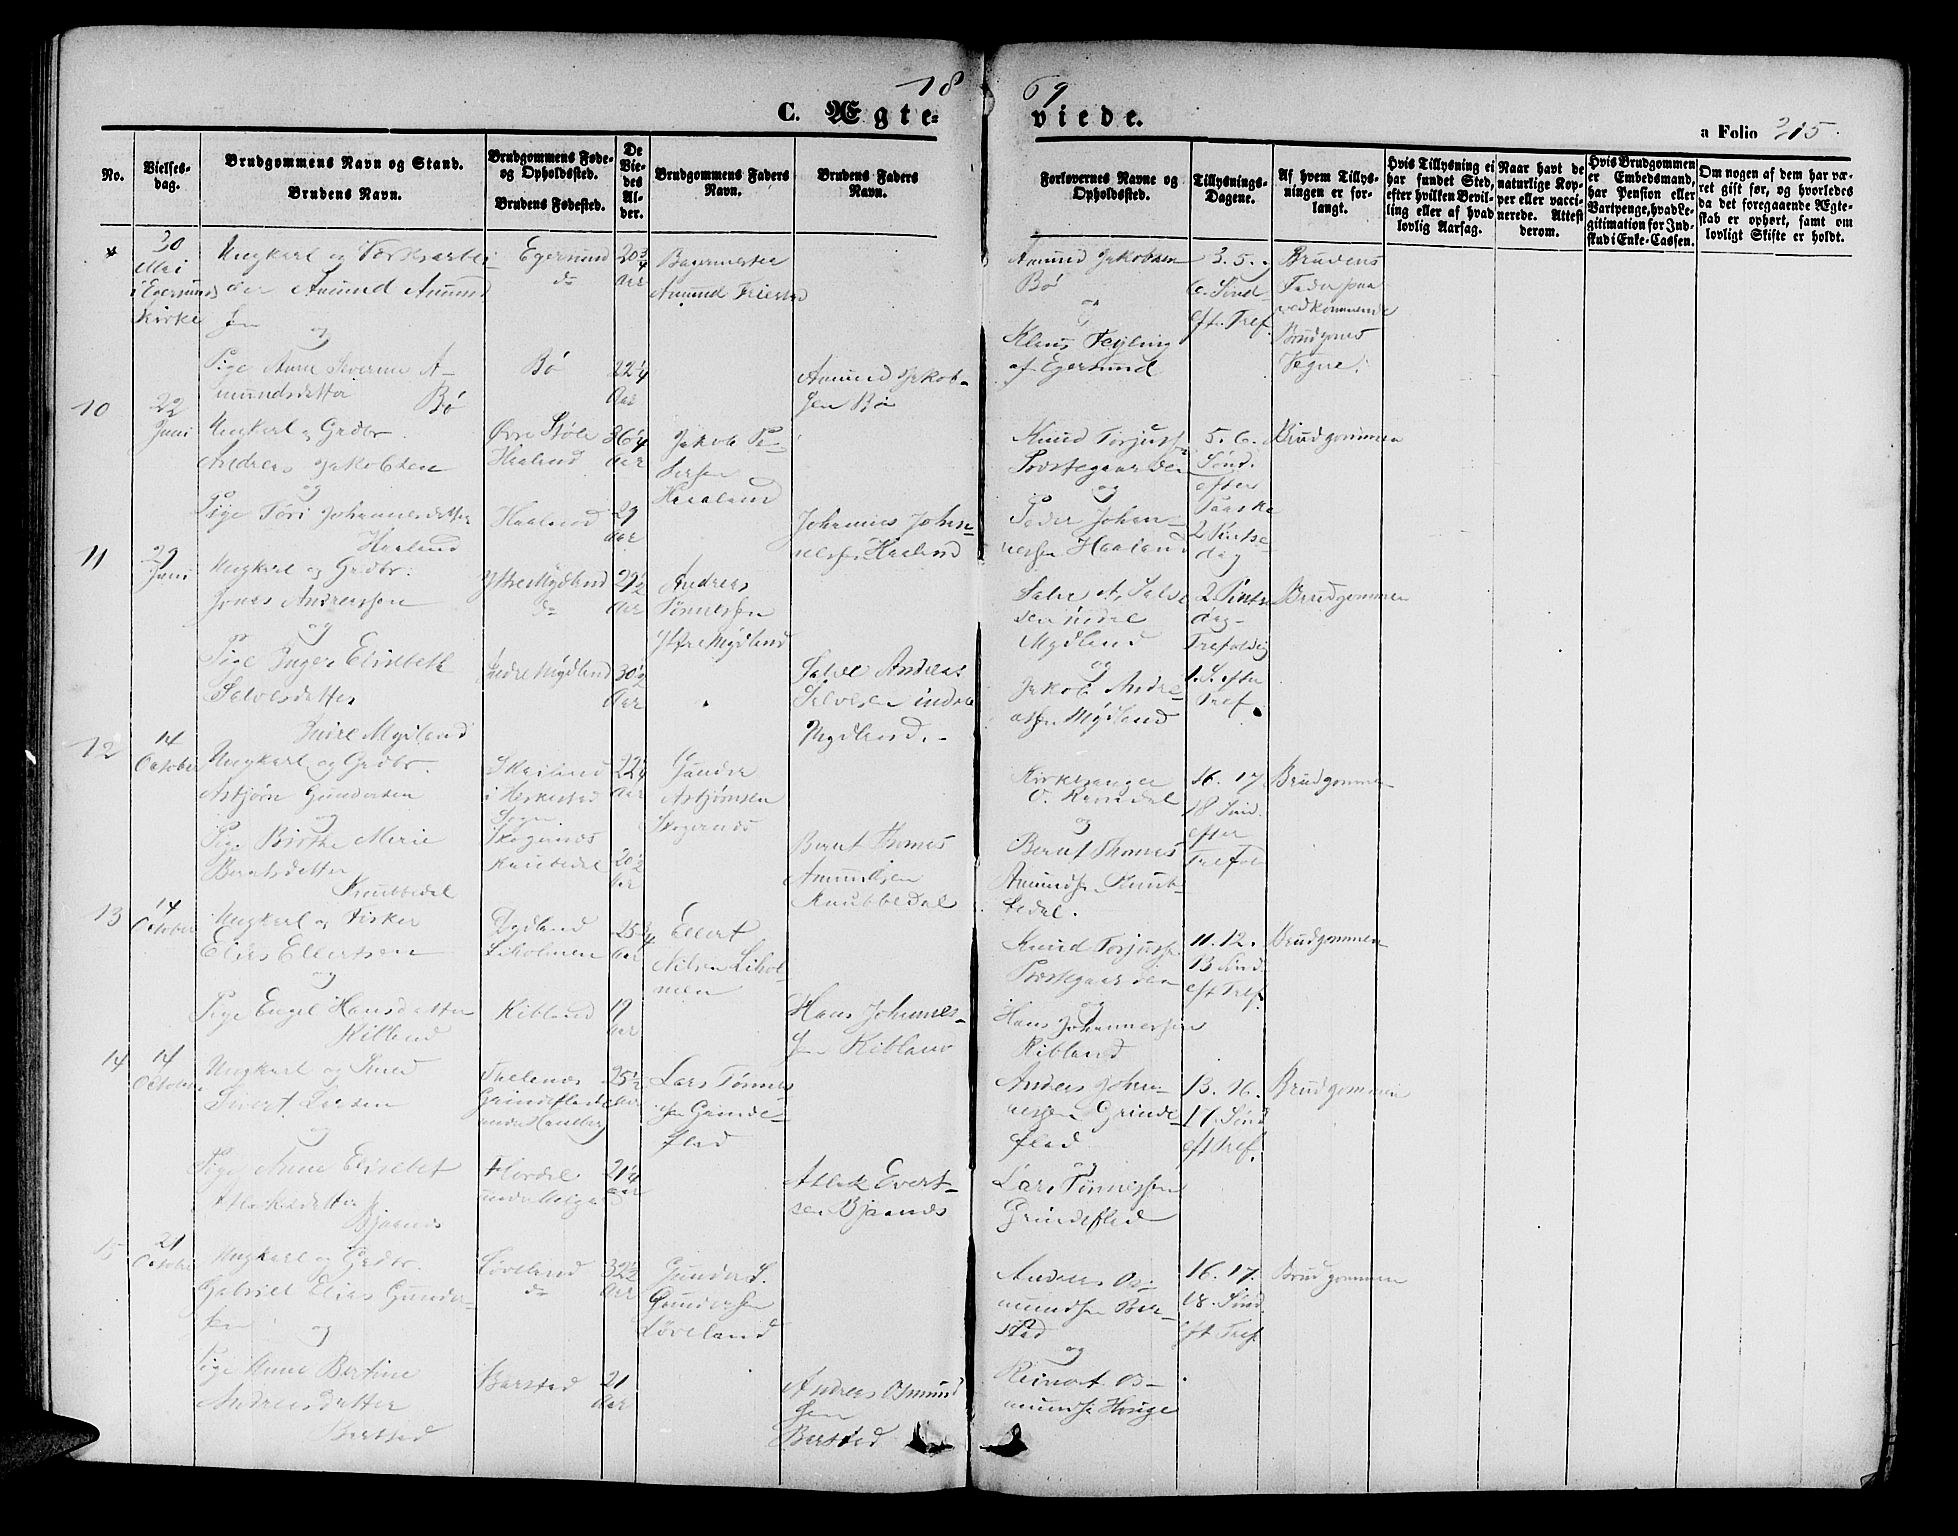 18 69
C. Ægte= viede.
a Folio 215.
No.
Vielses-
dag.
Brudgommens Navn og Stand.
Brudens Navn.
Brudgommens Føde-
og Opholdssted.
Brudens Fødested.
De
Vie-
des
Al-
der.
Brudgommens Faders
Navn.
Brudens Faders
Navn.
Forlovernes Navne og
Opholdssted.
Tillysnings-
Dagene.
Af hvem Tillys-
ningen er for-
langt.
Hvis Tillysning ei
har fundet Sted,
efter hvilken Bevil-
ling eller af hvad
lovlig Aarsag.
Naar havt de
naturlige Kop-
per eller vacci-
nerede. Attest
derom.
Hvis Brudgommen
er Embedsmand,
har Pension eller
Vartpenge, hvad Le-
gitimation for Ind-
skud i Enke-Cassen.
Om nogen af dem har væ-
ret gift før, og hvorledes
da det foregaaende Ægte-
skab er ophørt, samt om
lovligt Skifte er holdt.
30
Mai
i Egersunds
Kirke
Ungkarl og
der Amund Amund
sen
og
Pige Anne Severine A-
mundsdatter
Bø
Egersund
do
Bø
20 3/4
Aar
22 1/4
Aar
Amund Feiestad
Amund Jakob-
sen Bø
Amund Jakobsen
Bø
og
Klaus Feyling
af Egersund
3. 5.
6. Sønd
eft. Tref.
Brudens
Fader paa
vedkommende
Brudgoms
Vegne.
10
22
Juni
Ungkarl og Grdbr.
Andreas Jakobsen
og
Pige Tori Johannesdatter
Haaland
Øvre Støle
Haaland
Haaland
36 1/4
Aar
29
Aar
Jakob Pe-
dersen
Haaland
Johannes Johan-
nessen Haaland
Knud Torjuss.
Prestegaarden
og
Peder Johan-
nessen Haaland
5. 6.
Sønd.
efter
Paaske
2 Pintse-
dag
Brudgommen
11
29
Juni
Ungkarl og Grdbr.
Jonas Andreassen
og
Pige Inger Elisebeth
Salvesdatter
Indre Mydland
Ytre Mydland
do
Indre Mydland
29 1/2
Aar
30 1/2
Aar
Andreas
Tønnessen
Ytre Mydland
Salve Andreas
Salvesen indre
Mydland.
Salve A. Salve
sen indre
Mydland
og
Jakob Andre-
assen Mydland
2. Pintse
dag
Trefoldig
1. S. efter
Tref.
Brudgommen
12
14
October
Ungkarl og Grdbr.
Asbjørn Gundersen
og
Pige Birthe Marie
Berntsdatter
Knubbedal
Skailand
i Heskestad
Sogn
Skogenæs
Knubedal
22 1/4
Aar
20 1/2
Aar
Gunder
Asbjørnsen
Skogenæs
Bernt Thomas
Amundsen
Knubbedal
Kirkesanger
O. Ramdal
og
Bernt Thomas
Amundsen Knub-
bedal.
16. 17
18 Sønd.
efter
Trefol
Brudgommen
13
14
October
Ungkarl og Fisker
Elias Ellertsen
og
Pige Engel Hansdatter
Kibland
Dydland
Liholmen
Kibland
25 3/4
Aar
19
Aar
Ellert
Nilsen Lihol-
men
Hans Johannes-
sen Kibland
Knud Torjuss.
Prestegaarden
og
Hans Johannessen
Kibland
11. 12.
13 Sønd.
eft Tref.
Brudgommen
14
14
October
Ungkarl og
Sivert Larsen
og
Pige Anne Elisebet
Atlaksdatter
Bjaanæs
Grindeflad
Flordal
25 1/2
Aar
21 1/4
Aar
Lars Tønnes
sen Grinde-
flad
Atlak Evert-
sen Bjaanæs
Anders Johan-
nessen Grinde
flad
og
Lars Tønnessen
Grindeflad
13. 16.
17. Sønd
eft Tref.
Brudgommen
15
21
October
Ungkarl og Grdbr.
Gabriel Elias Gunder-
sen
og
Pige Anne Bertine
Andreasdatter
Barstad
Løveland
do
Barstad
32 1/2
Aar
21
Aar
Gunder S.
Gundersen
Løveland
Andreas Osmund
sen
Barstad
Andreas Os-
mundsen Bar-
stad
og
Reinart Os-
munds. Hauge
16. 17.
18. Sønd.
eft Tref.
Brudgommen